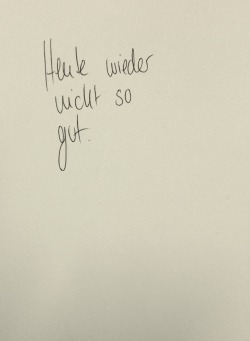 Heute wieder
nicht so
gut.